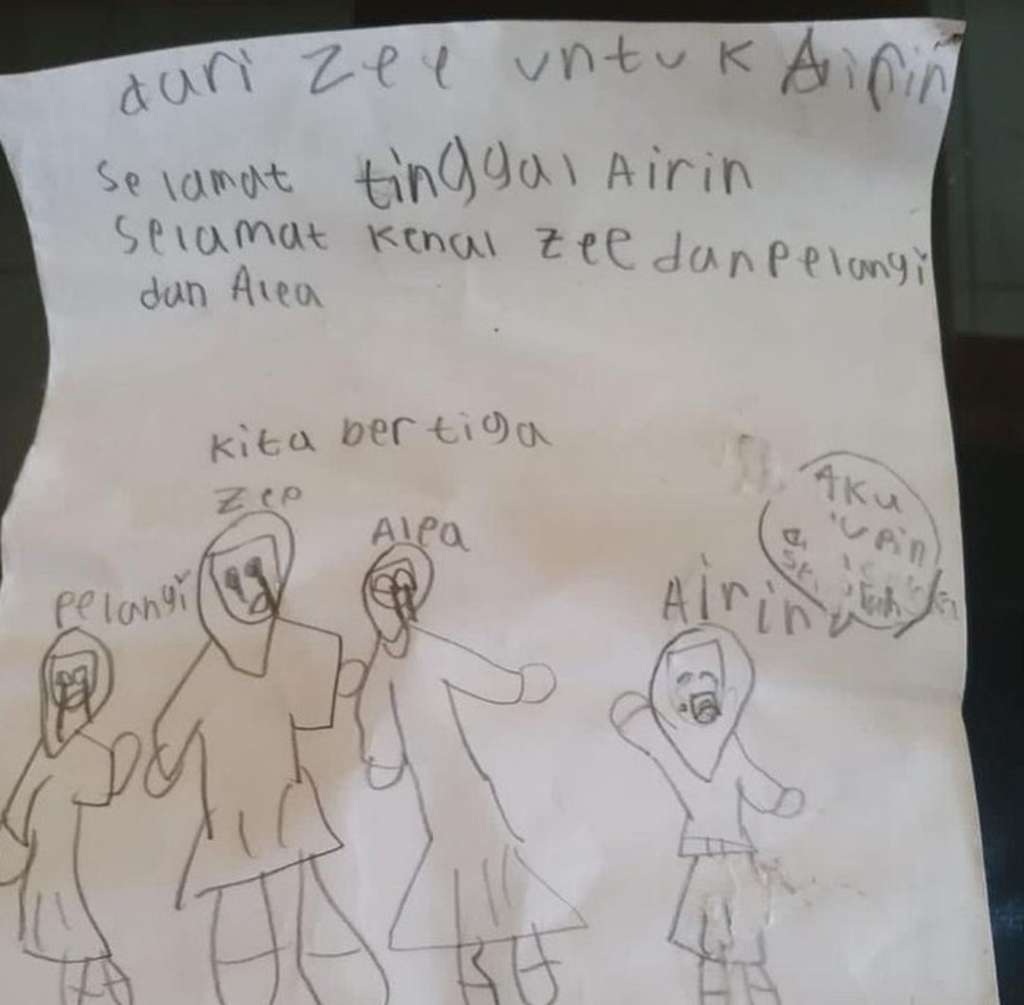 dari Zee untuk Airin
Selamat tinggal Airin
Selamat kenal Zee dan Pelangi
dan Alea
Kita bertiga
Zee
Alea
Pelangi
Airin
Aku